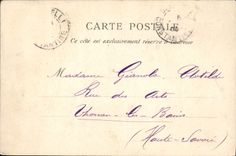 CARTE POSTALE
Ce côté est exclusivement réservé à l'adresse
Madame
Rue des Arts
Thonon-les-Bains
(Haute-Savoie)